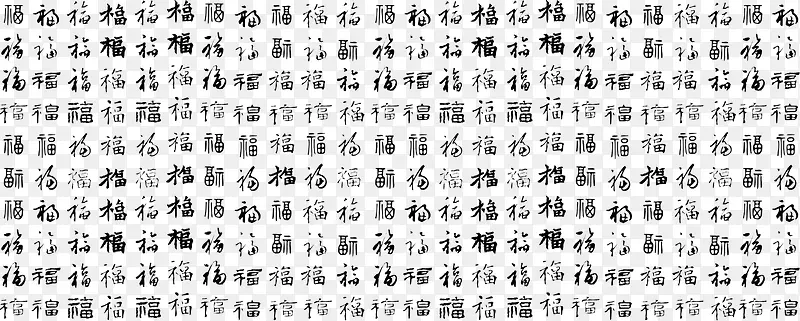 福福福福福福福福福福福福福福福福福福福福福福福福
福福福福福福福福福福福福福福福福福福福福福福福福
福福福福福福福福福福福福福福福福福福福福福福福福
福福福福福福福福福福福福福福福福福福福福福福福福
福福福福福福福福福福福福福福福福福福福福福福福福
福福福福福福福福福福福福福福福福福福福福福福福福
福福福福福福福福福福福福福福福福福福福福福福福福
福福福福福福福福福福福福福福福福福福福福福福福福
福福福福福福福福福福福福福福福福福福福福福福福福
福福福福福福福福福福福福福福福福福福福福福福福福